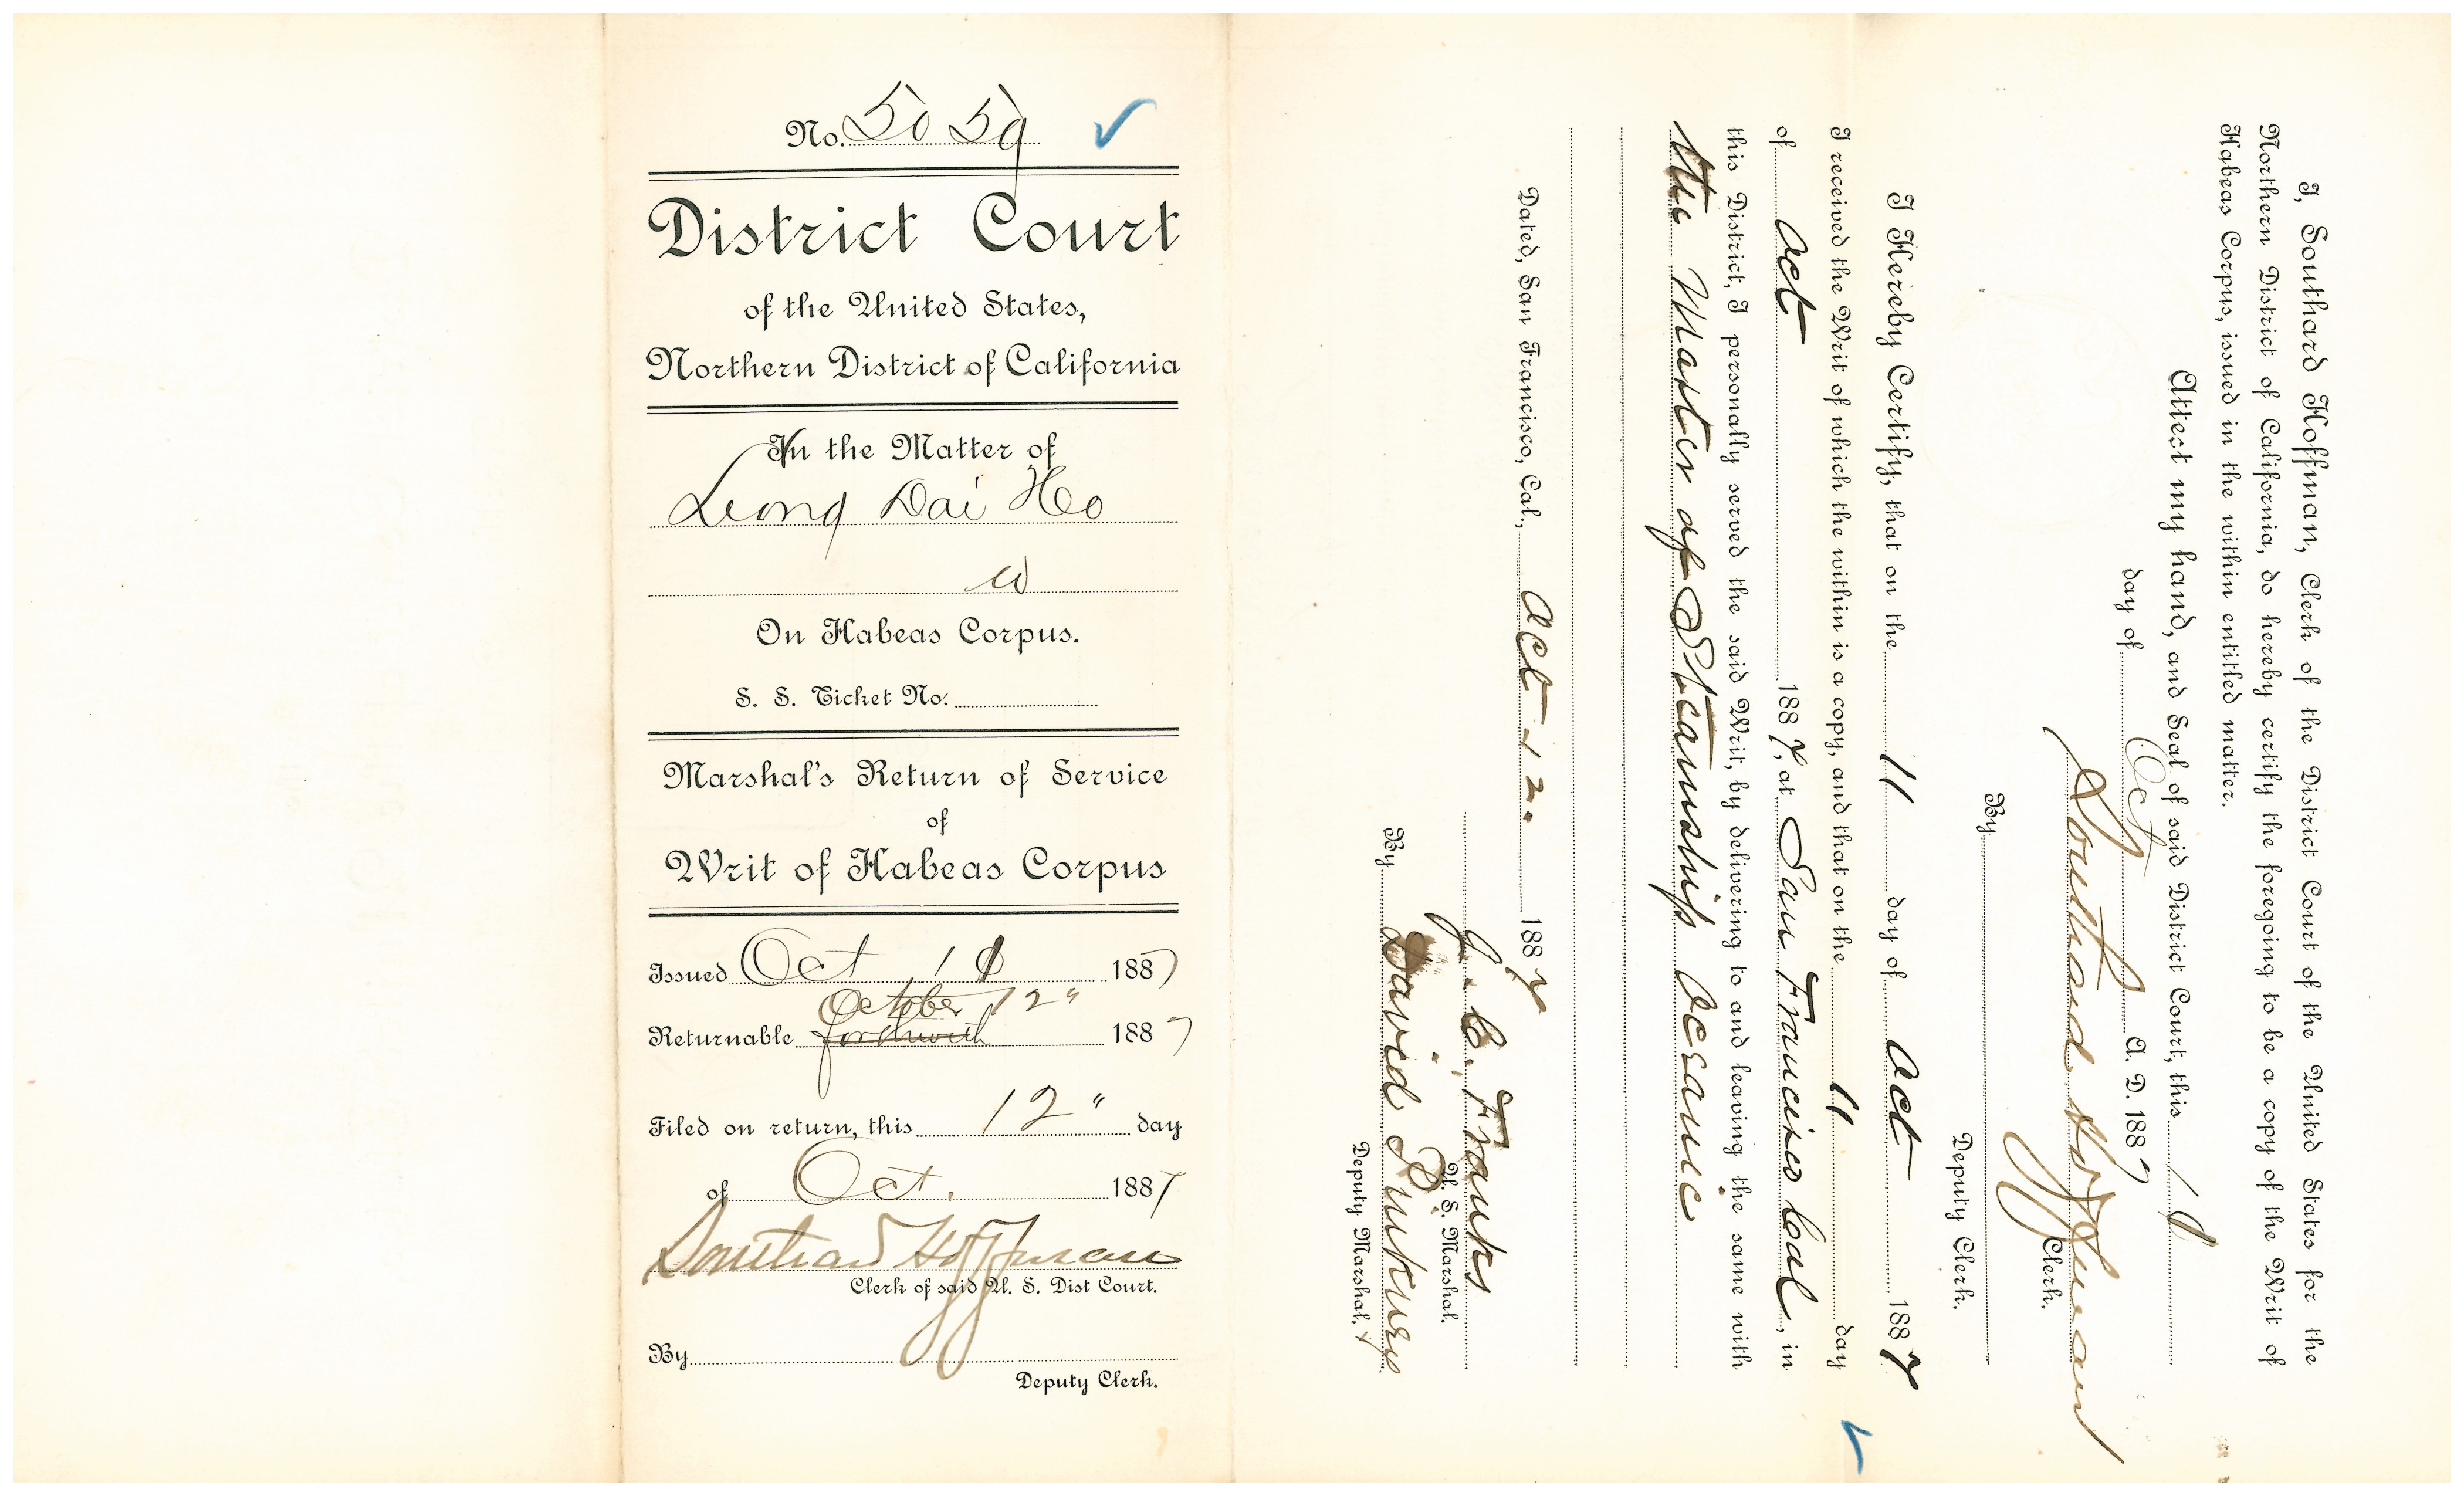 No. 5059
District Court
of the United States,
Northern District of California
In the Matter of
Leong Dai Ho
W
On Habeas Corpus.
S. S. Ticket No.
Marshal's Return of Service
of
Writ of Habeas Corpus
Issued Oct 11 1887
October 12"
Returnable forthwith 1887
Filed on return, this 12" day
of Oct. 1887
Southard Hoffman
Clerk of said U. S. Dist Court.
By
Deputy Clerk.
I, Southard Hoffman, Clerk of the District Court of the United States for the
Northern District of California, do hereby certify the foregoing to be a copy of the Writ of
Habeas Corpus, issued in the within entitled matter.
Attest my hand, and Seal of said District Court, this 11
day of Oct A. D. 1887
Southard Hoffman
Clerk.
By
Deputy Clerk.
I Hereby Certify, that on the 11 day of Oct 1887
I received the Writ of which the within is a copy, and that on the 11 day
of Oct 1887, at San Francisco Cal, in
this District, I personally served the said Writ, by delivering to and leaving the same with
the Master of Steamship Oceanic
Dated, San Francisco, Cal., Oct 12. 1887
J. C. Franks
U. S. Marshal.
By David B.
Deputy Marshal.